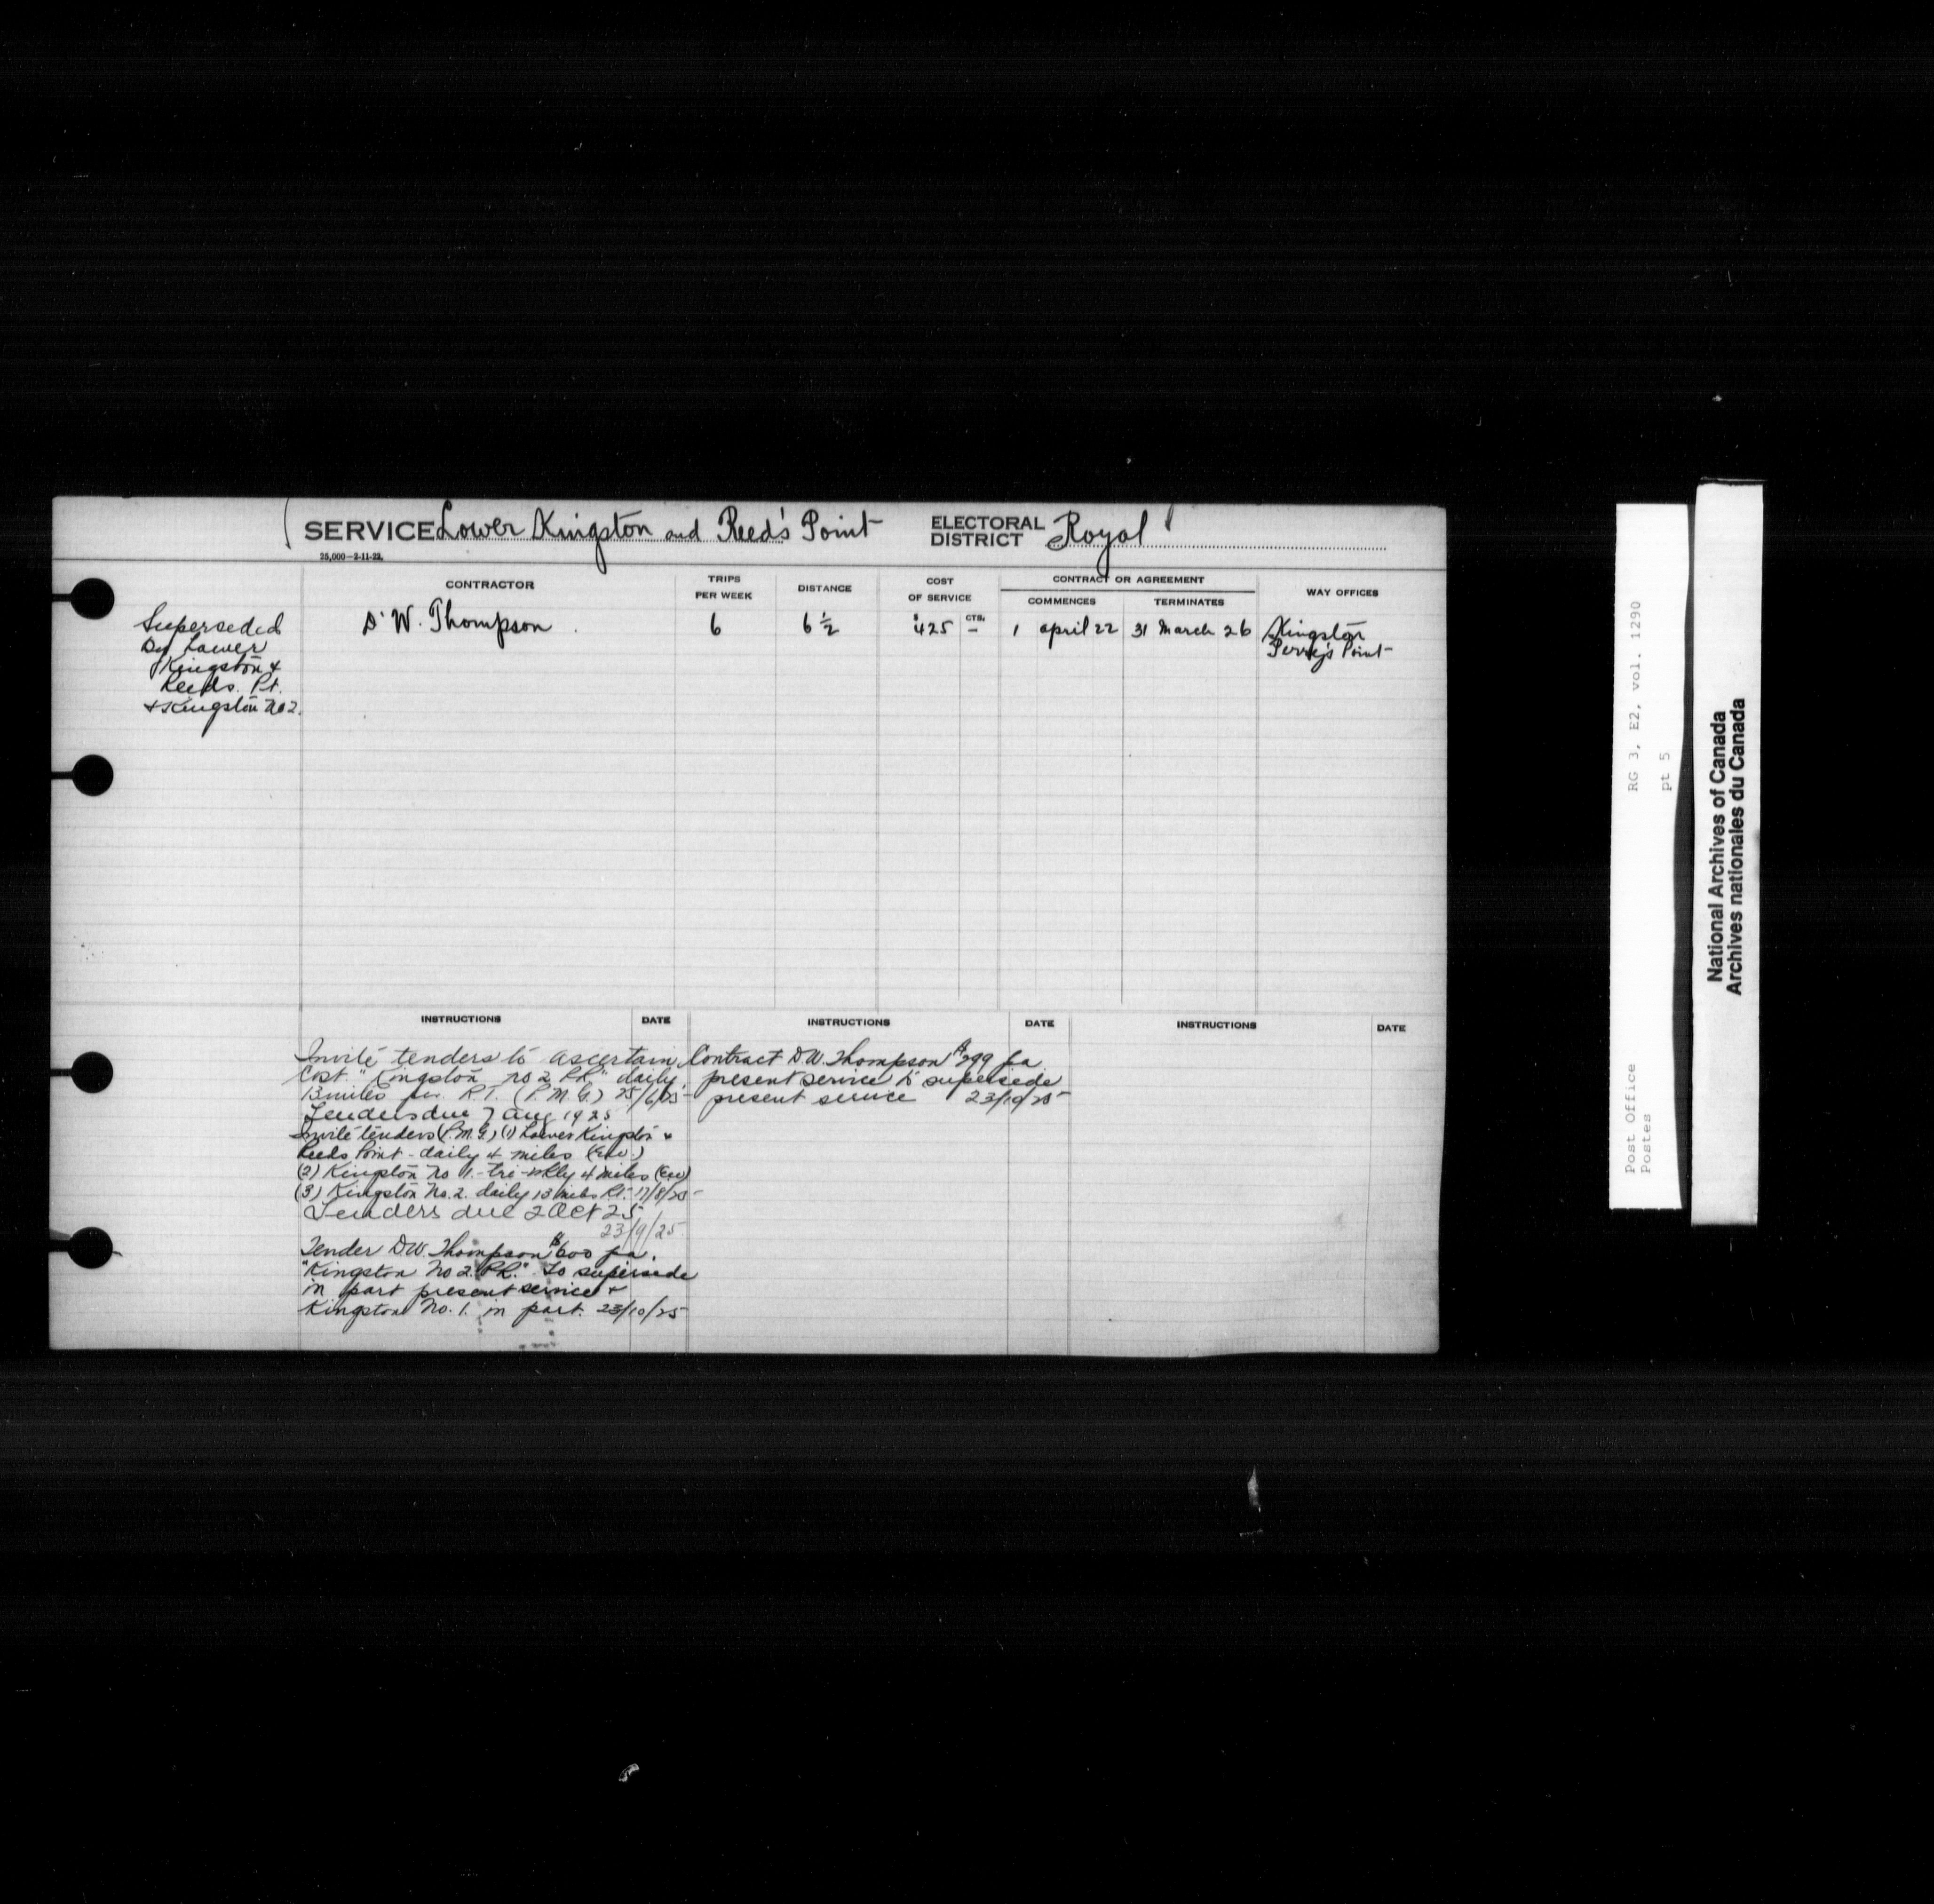 SERVICE Lower Kingston and Reed's Point
ELECTORAL DISTRICT Royal
25,000-2-11-22.
CONTRACTOR
TRIPS PER WEEK
DISTANCE
COST OF SERVICE
CONTRACT OR AGREEMENT
COMMENCES
TERMINATES
WAY OFFICES
Superseded
By Lower
Kingston &
Reeds. Pt.
& Kingston No 2.
D. W. Thompson
6
6 1/2
$ 425 CTS. –
1 april 22
31 March 26
Kingston
Perry's Point
INSTRUCTIONS
DATE
INSTRUCTIONS
DATE
INSTRUCTIONS
DATE
Invite tenders to ascertain
Cost "Kingston no 2 RR" daily,
13 miles per R.T. (P.M.G.) 25/6/25
Tenders due 7 Aug 1925
Invite tenders (P.M.G.) (1) Lower Kingston &
Reeds Point - daily 4 miles
(2) Kingston no 1 - tri-wkly 4 miles
(3) Kingston No. 2. daily 13 miles R.T. 17/8/25
Tenders due 2 Oct 25
23/9/25
Tender D.W. Thompson $600 pa.
"Kingston No 2. RR." to supersede
in part present service &
Kingston No. 1. in part. 23/10/25
Contract D.W. Thompson $299 pa
present service to supersede
present service 23/10/25
Post Office
Postes
RG 3, E2, vol. 1290
pt 5
National Archives of Canada
Archives nationales du Canada